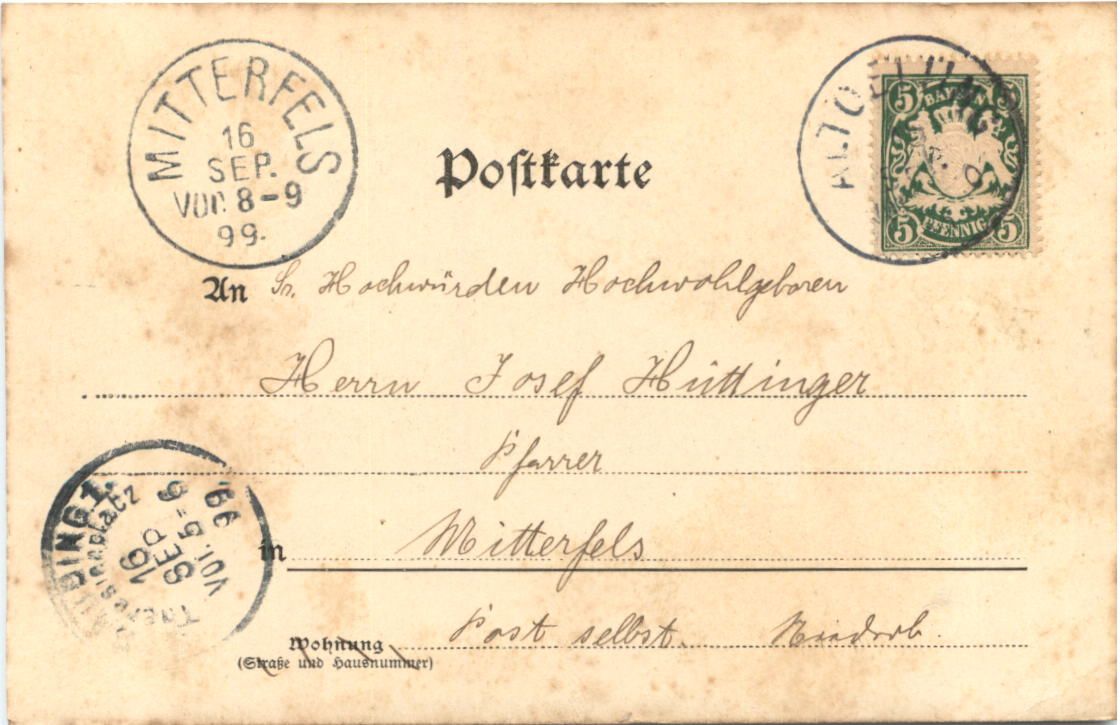 MITTERFELS
16
SEP.
VOR 8-9
99.
ALTOETTING
5 BAYERN 5
5 PFENNIG 5
Poſtkarte
An Sr. Hochwürden Hochwohlgeboren
Herrn Josef Hüttinger
Pfarrer
in Mitterfels
Post selbst. Niederb.
Wohnung
(Straße und Hausnummer)
16
SEP
VOR. 5-6
99.